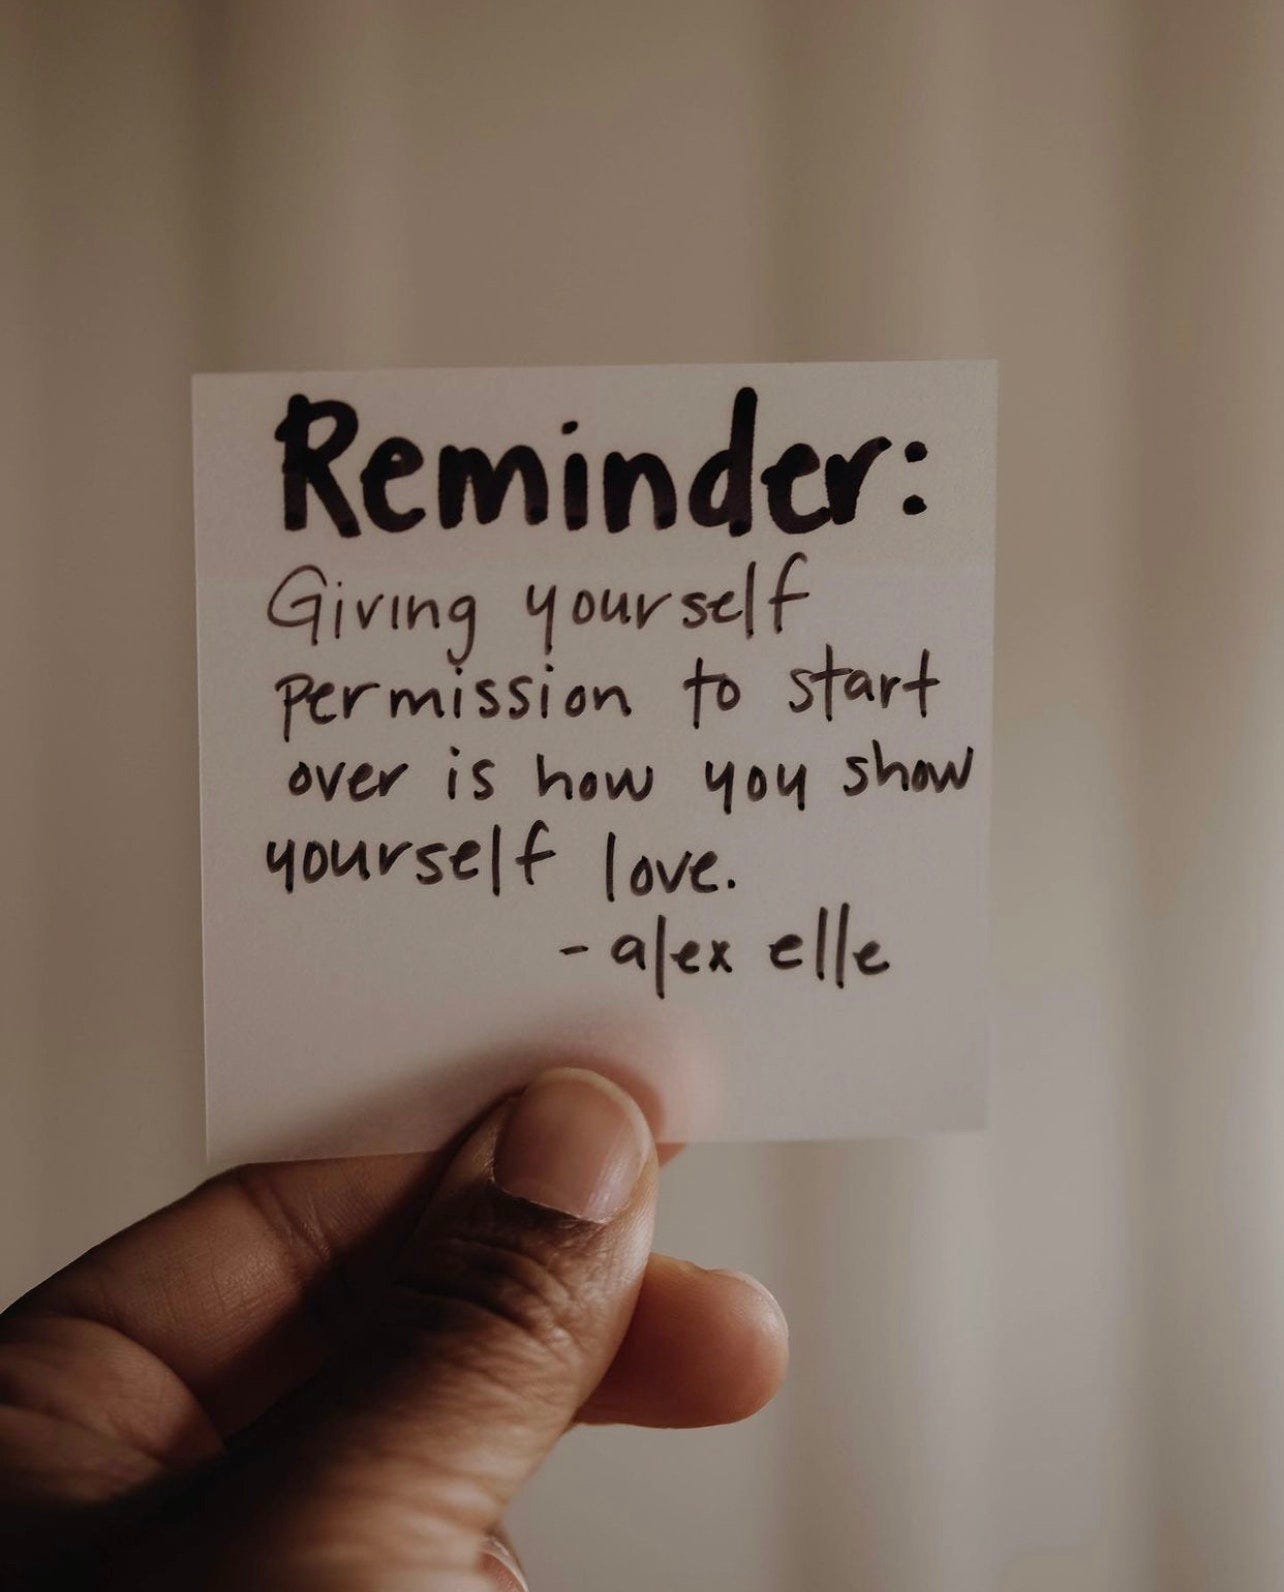 Reminder:
Giving yourself
permission to start
over is how you show
yourself love.
- alex elle